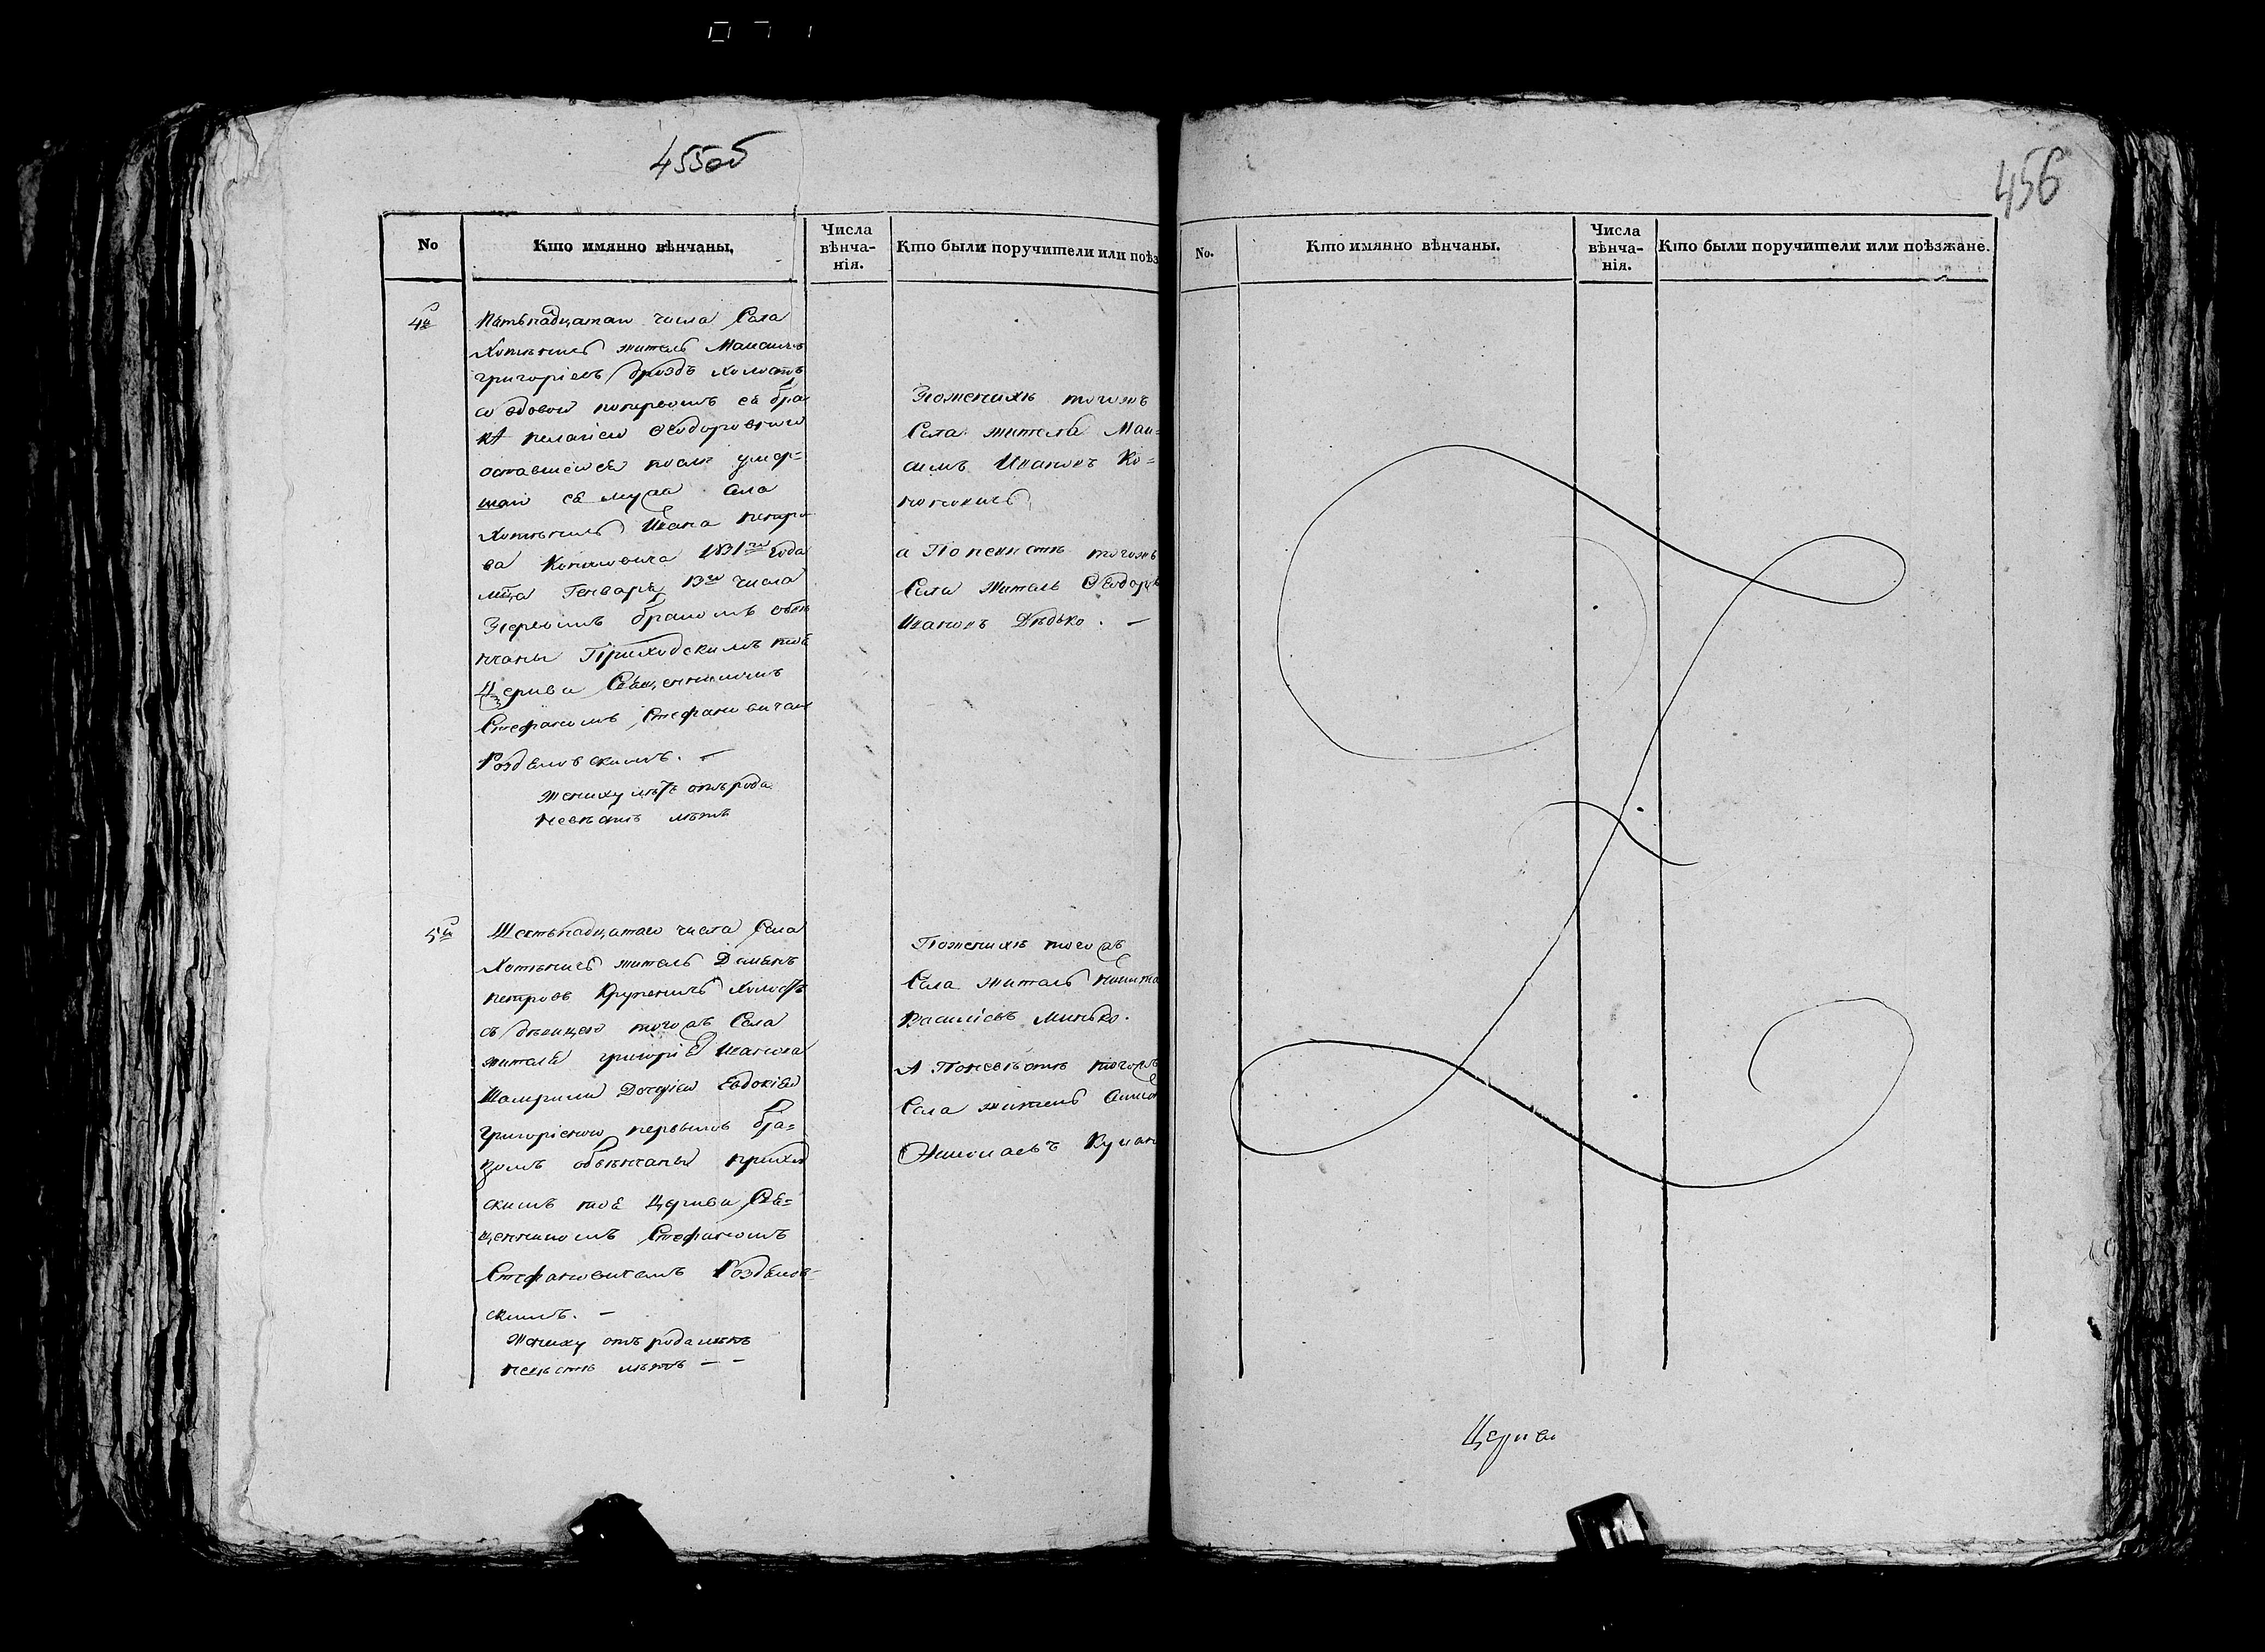 455об
456
No
Кто имянно вѣнчаны.
Числа вѣнча-нія.
Кто были поручители или поѣз
4й
Пятьнадцатаго числа Села
Хотѣничь житель Максимъ
Григоріевъ Дроздъ холостъ
со вдовой попервомъ ея бра
кѣ Пелагіею Ѳеодоровною
оставшеюся послѣ умер=
шаго ея мужа Села
Хотѣничь Ивана Петро
ва Кононовича 1831го года
мца Генваря 13го числа
Первымъ бракомъ обвѣ
нчаны Приходскимъ тоя
Церкви Священникомъ
Стефаномъ Стефановичемъ
Роздяловскимъ. —
Жениху лѣтъ отъ рода
Невѣстѣ лѣтъ
Поженихѣ тогожъ
Села житель Мак=
симъ Ивановъ Ко=
ноновичь
а Поневѣстѣ тогожъ
Села житель Ѳеодоръ
Ивановъ Дѣдько. —
5й
Шестьнадцатаго числа Села
Хотѣничь житель Демянъ
Петровъ Крупеничь холостъ
съ дѣвицею тогожъ Села
жителя Григорія Иванова
дочерью Евдокіею
Григоріевною первымъ бра=
комъ обвѣнчаны приход
скимъ тоя Церкви Свя=
щенникомъ Стефаномъ
Стефановичемъ Роздялов=
скимъ. —
Жениху отъ рода лѣтъ
Невѣстѣ лѣтъ — —
Поженихѣ тогожъ
Села житель Никита
Василіевъ Минько.
А Поневѣстѣ тогожъ
Села житель
No.
Кто имянно вѣнчаны.
Числа вѣнча-нія.
Кто были поручители или поѣзжане.
Церкви